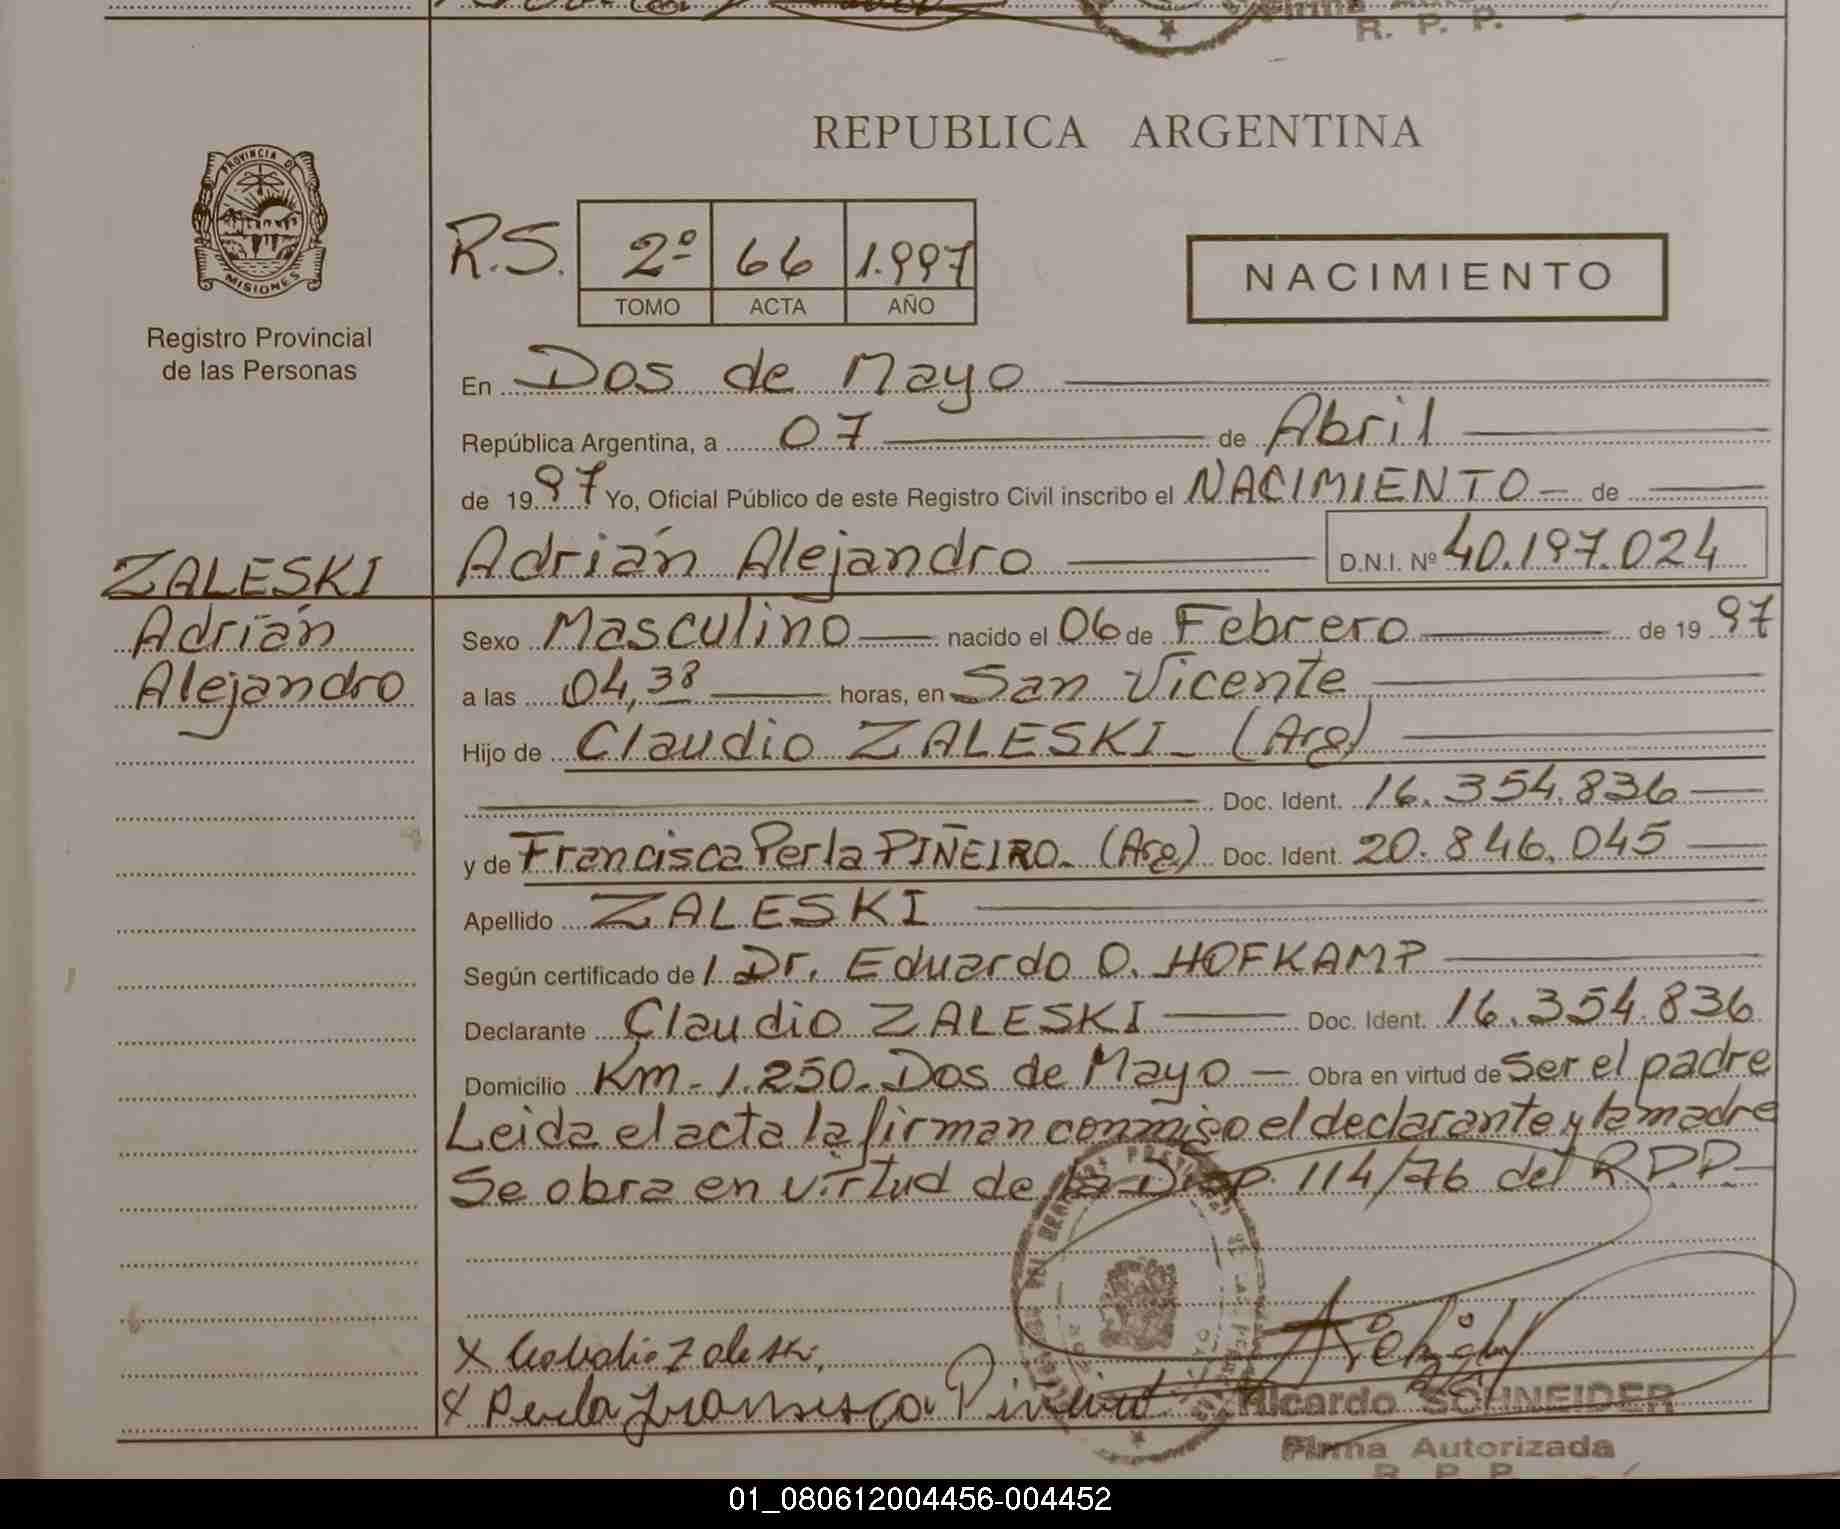 R. P. P.
REPUBLICA ARGENTINA
PROVINCIA DE
MISIONES
Registro Provincial
de las Personas
R.S. 2º 66 1.997
TOMO ACTA AÑO
NACIMIENTO
En Dos de Mayo
República Argentina, a 07 de Abril
de 1997 Yo, Oficial Público de este Registro Civil inscribo el NACIMIENTO de
Adrián Alejandro D.N.I. Nº 40.197.024
ZALESKI
Adrián
Alejandro
Sexo Masculino nacido el 06 de Febrero de 1997
a las 04,38 horas, en San Vicente
Hijo de Claudio ZALESKI - (Arg)
Doc. Ident. 16.354.836
y de Francisca Perla PIÑEIRO - (Arg) Doc. Ident. 20.846.045
Apellido ZALESKI
Según certificado de / Dr. Eduardo O. HOFKAMP
Declarante Claudio ZALESKI Doc. Ident. 16.354.836
Domicilio Km - 1.250 - Dos de Mayo Obra en virtud de Ser el padre
Leida el acta la firman conmigo el declarante y la madre
Se obra en virtud de la Disp. 114/76 del R.P.P.
X Claudio Zaleski
X Perla Fransisca
Ricardo SCHNEIDER
Firma Autorizada
R. P. P.
01_080612004456-004452